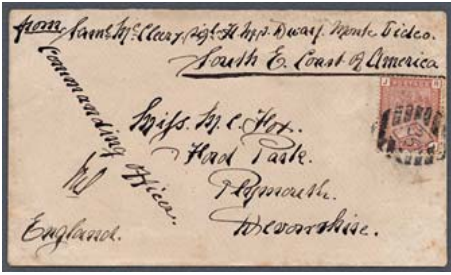 from Saml McCleary Sigl H.M.S. Dwarf. Monte Video.
South E. Coast of America
Commanding Officer.
Miss. M. C. Fox.
Ford Park.
Plymouth.
Devonshire.
England.